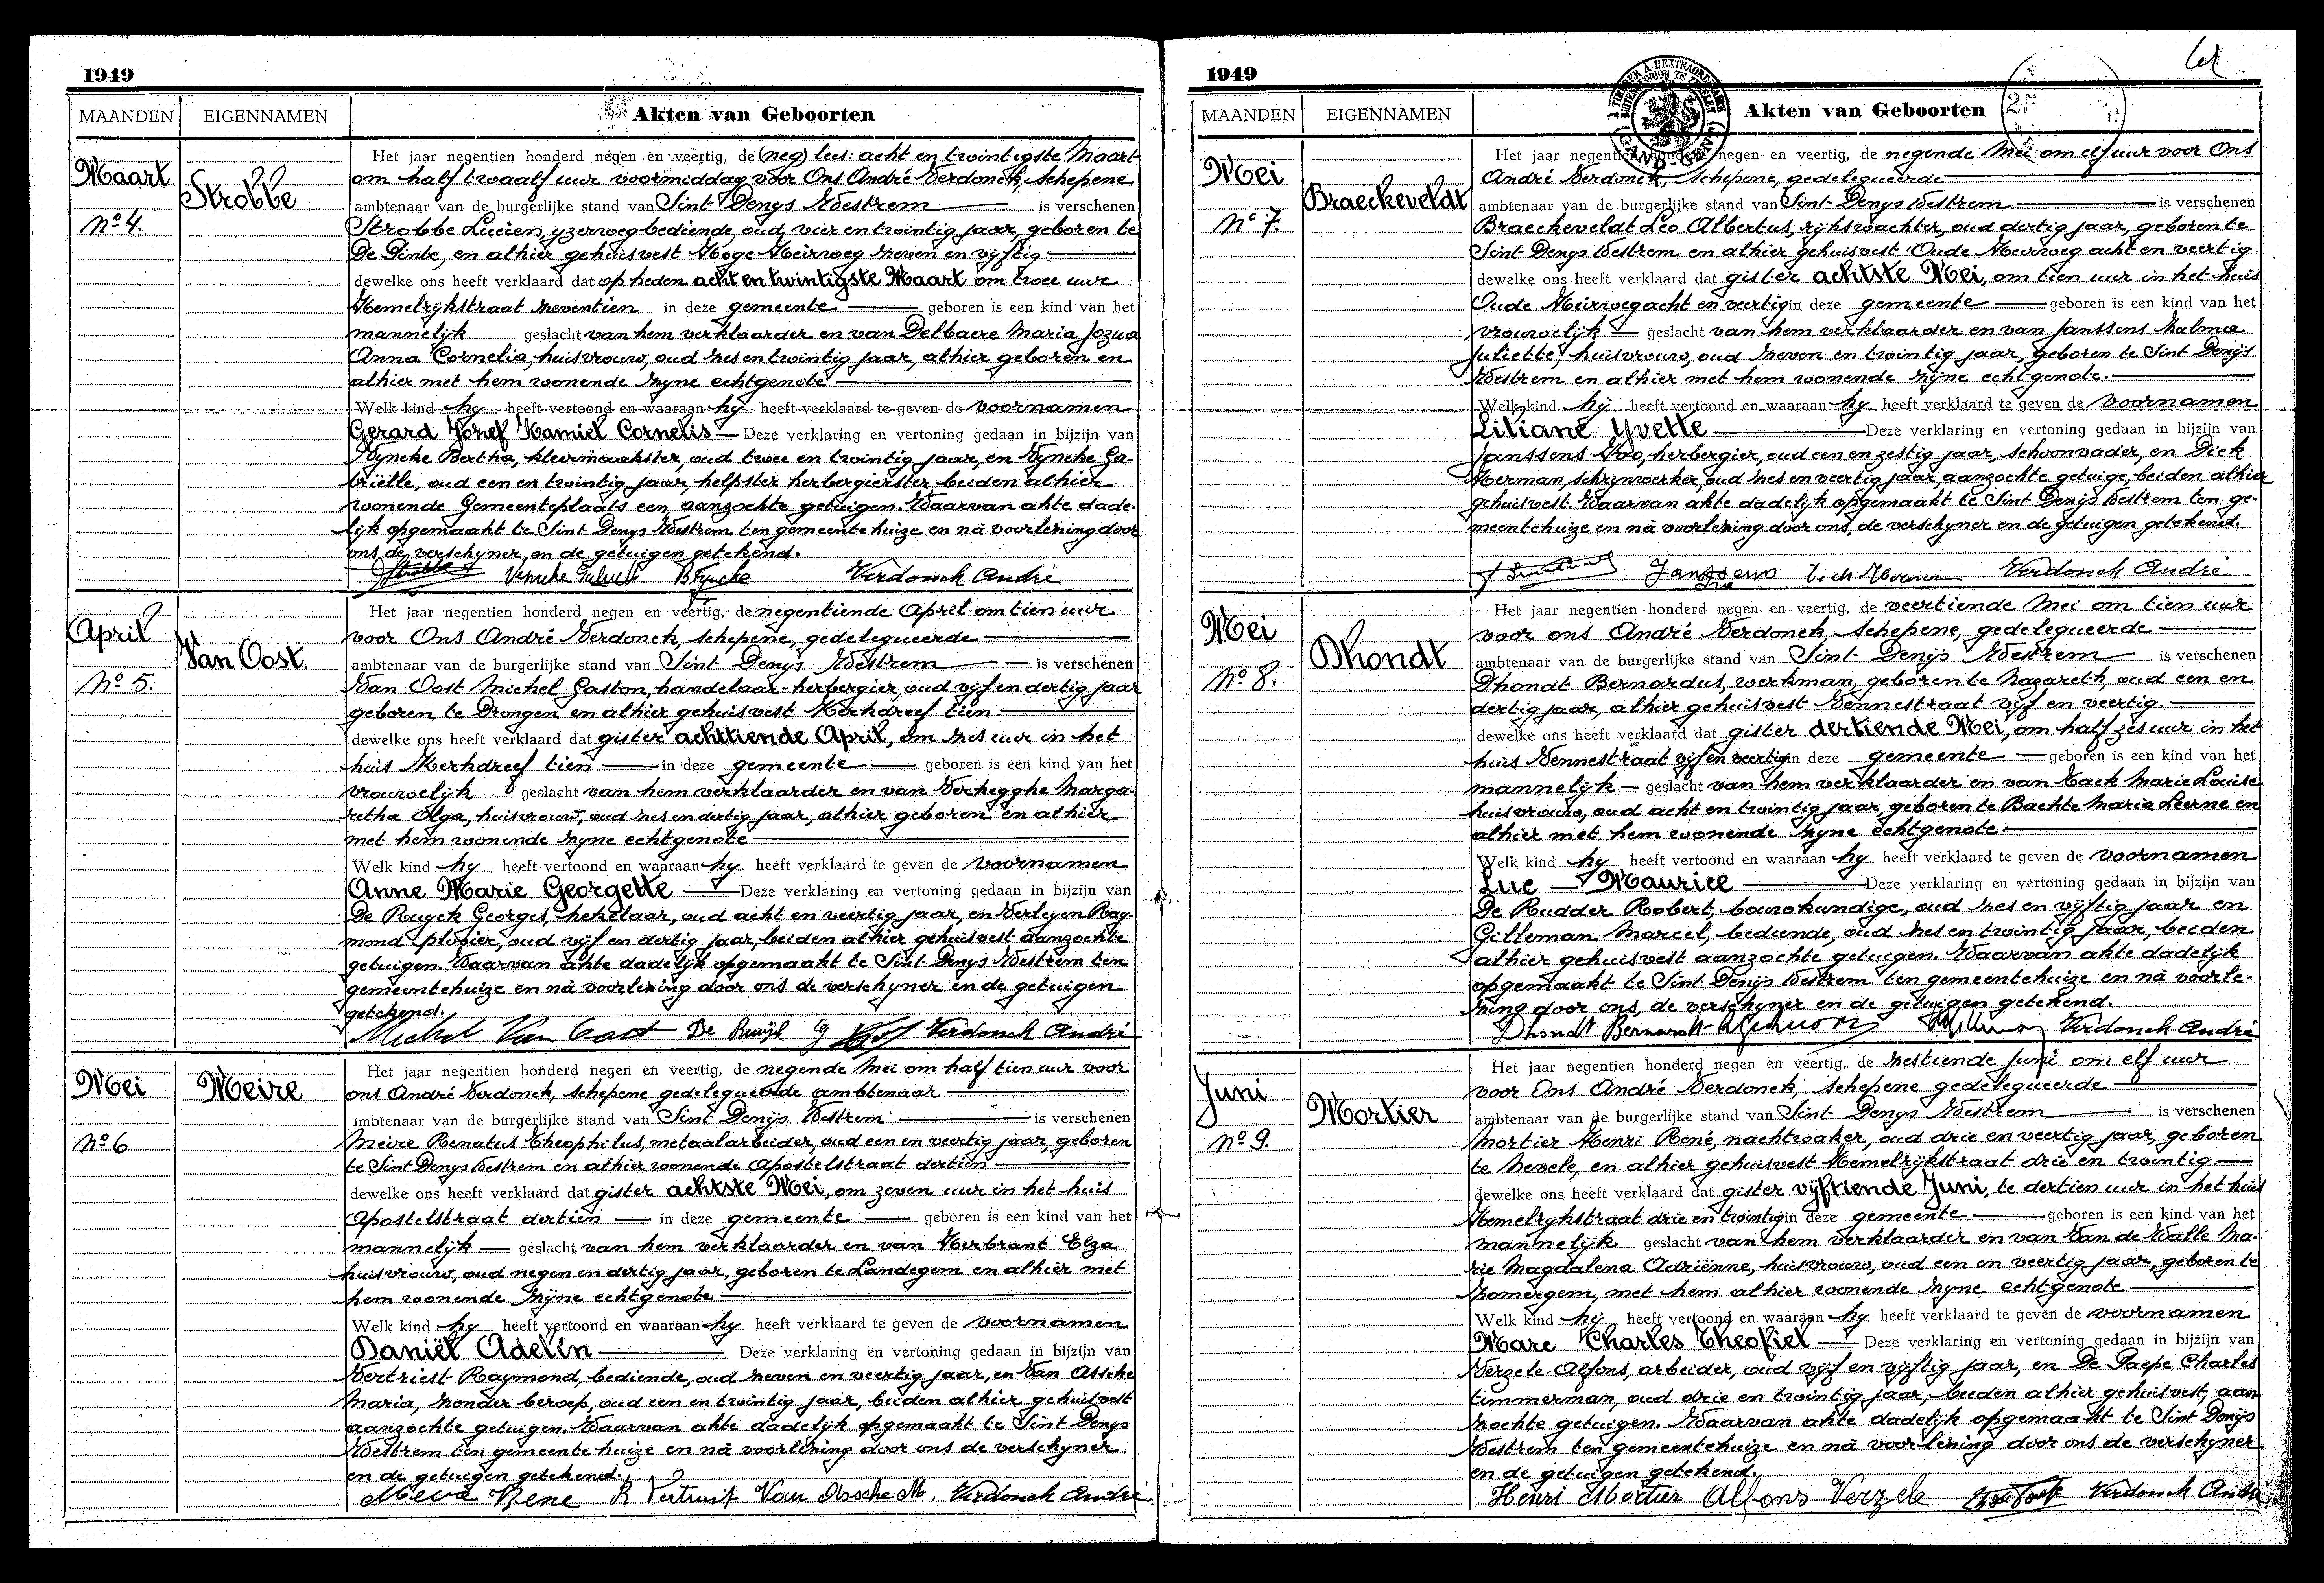 1949
MAANDEN EIGENNAMEN Akten van Geboorten
Maart
No 4.
Strobbe
Het jaar negentien honderd negen en veertig, de (neg) lees: acht en twintigste Maart
om half twaalf uur voormiddag voor Ons André Verdonck, schepene
ambtenaar van de burgerlijke stand van Sint Denys Westrem is verschenen
Strobbe Lucien, yzerwegbediende, oud, vier en twintig jaar, geboren te
De Pinte, en alhier gehuisvest Hoge Heirweg zeven en vijftig
dewelke ons heeft verklaard dat op heden acht en twintigste Maart om twee uur
Hemelrykstraat zeventien in deze gemeente geboren is een kind van het
mannelijk geslacht van hem verklaarder en van Delbaere Maria Jozua
Anna Cornelia, huisvrouw, oud zes en twintig jaar, alhier geboren en
alhier met hem wonende zyne echtgenote
Welk kind hy heeft vertoond en waaraan hy heeft verklaard te geven de voornamen
Gerard Jozef Kamiel Cornelis Deze verklaring en vertoning gedaan in bijzijn van
Vyncke Bertha, kleermaakster, oud twee en twintig jaar, en Vyncke Ga-
briëlle, oud een en twintig jaar, helpster herbergierster beiden alhier
wonende Gemeenteplaats een, aanzochte getuigen. Waarvan akte dade-
lijk opgemaakt te Sint Denys Westrem ten gemeentehuize en nà voorlezing door
ons de verschyner en de getuigen getekend.
Strobbe B Vyncke Verdonck André
April
No 5.
Van Oost.
Het jaar negentien honderd negen en veertig, de negentiende April om tien uur
voor Ons André Verdonck, schepene, gedelegueerde
ambtenaar van de burgerlijke stand van Sint Denys Westrem is verschenen
Van Oost Michel Gaston, handelaar-herbergier, oud vijf en dertig jaar
geboren te Drongen en alhier gehuisvest Kerkdreef tien
dewelke ons heeft verklaard dat gister achttiende April, om zes uur in het
huis Kerkdreef tien in deze gemeente geboren is een kind van het
vrouwelijk geslacht van hem verklaarder en van Verhegghe Marga-
retha Olga, huisvrouw, oud zes en dertig jaar, alhier geboren en alhier
met hem wonende zyne echtgenote
Welk kind hy heeft vertoond en waaraan hy heeft verklaard te geven de voornamen
Anne Marie Georgette Deze verklaring en vertoning gedaan in bijzijn van
De Ruyck Georges, hekelaar, oud acht en veertig jaar, en Verleyen Ray-
mond plooier, oud vijf en dertig jaar, beiden alhier gehuisvest aanzochte
getuigen. Waarvan akte dadelijk opgemaakt te Sint Denys Westrem ten
gemeentehuize en nà voorlezing door ons de verschyner en de getuigen
getekend.
Michel Van Oost De Ruyck G Verdonck André
Mei
No 6
Meire
Het jaar negentien honderd negen en veertig, de negende Mei om half tien uur voor
ons André Verdonck, schepene gedelegueerde ambtenaar
ambtenaar van de burgerlijke stand van Sint Denijs, Westrem is verschenen
Meire Renatus Theophilus, metaalarbeider, oud een en veertig jaar, geboren
te Sint Denys Westrem en alhier wonende Apostelstraat dertien
dewelke ons heeft verklaard dat gister achtste Mei, om zeven uur in het huis
Apostelstraat dertien in deze gemeente geboren is een kind van het
mannelijk geslacht van hem verklaarder en van Herbrant Elza
huisvrouw, oud negen en dertig jaar, geboren te Landegem en alhier met
hem wonende zijne echtgenote
Welk kind hy heeft vertoond en waaraan hy heeft verklaard te geven de voornamen
Daniël Adelin Deze verklaring en vertoning gedaan in bijzijn van
Vertriest Raymond, bediende, oud zeven en veertig jaar, en Van Assche
Maria, zonder beroep, oud een en twintig jaar, beiden alhier gehuisvest
aanzochte getuigen. Waarvan akte dadelijk opgemaakt te Sint Denys
Westrem ten gemeentehuize en nà voorlezing door ons de verschyner
en de getuigen getekend.
Meire Rene R Vertriest Van Assche M. Verdonck André
1949
MAANDEN EIGENNAMEN Akten van Geboorten
Mei
No 7.
Braeckeveldt
Het jaar negentien honderd negen en veertig, de negende Mei om elf uur voor Ons
André Verdonck, schepene, gedelegueerde
ambtenaar van de burgerlijke stand van Sint Denys Westrem is verschenen
Braeckeveldt Leo Albertus, rijkswachter, oud dertig jaar, geboren te
Sint Denys Westrem en alhier gehuisvest Oude Heirweg acht en veertig
dewelke ons heeft verklaard dat gister achtste Mei, om tien uur in het huis
Oude Heirweg acht en veertig in deze gemeente geboren is een kind van het
vrouwelijk geslacht van hem verklaarder en van Janssens Zulma
Juliette, huisvrouw, oud zeven en twintig jaar, geboren te Sint Denijs
Westrem en alhier met hem wonende zijne echtgenote.
Welk kind hij heeft vertoond en waaraan hy heeft verklaard te geven de voornamen
Liliane Yvette Deze verklaring en vertoning gedaan in bijzijn van
Janssens Ivo, herbergier, oud een en zestig jaar, schoonvader, en Dick
Herman, schrynwerker, oud zes en veertig jaar, aanzochte getuige, beiden alhier
gehuisvest. Waarvan akte dadelijk opgemaakt te Sint Denijs Westrem ten ge-
meentehuize en nà voorlezing door ons, de verschyner en de getuigen getekend.
Janssens Verdonck André
Mei
No 8.
Dhondt
Het jaar negentien honderd negen en veertig, de veertiende Mei om tien uur
voor ons André Verdonck, schepene, gedelegueerde
ambtenaar van de burgerlijke stand van Sint Denijs Westrem is verschenen
Dhondt Bernardus, werkman, geboren te Nazareth, oud een en
dertig jaar, alhier gehuisvest Vennestraat vijf en veertig.
dewelke ons heeft verklaard dat gister dertiende Mei, om half zes uur in het
huis Vennestraat vijf en veertig in deze gemeente geboren is een kind van het
mannelyk geslacht van hem verklaarder en van Tack Marie Louise
huisvrouw, oud acht en twintig jaar, geboren te Bachte Maria Leerne en
alhier met hem wonende zyne echtgenote.
Welk kind hy heeft vertoond en waaraan hy heeft verklaard te geven de voornamen
Luc Maurice Deze verklaring en vertoning gedaan in bijzijn van
De Rudder Robert, bouwkundige, oud zes en vijftig jaar en
Gilleman Marcel, bediende, oud zes en twintig jaar, beiden
alhier gehuisvest aanzochte getuigen. Waarvan akte dadelijk
opgemaakt te Sint Denijs Westrem ten gemeentehuize en nà voorle-
zing door ons, de verschyner en de getuigen getekend.
Dhondt Bernard Verdonck André
Juni
No 9.
Mortier
Het jaar negentien honderd negen en veertig, de zestiende Juni om elf uur
voor Ons André Verdonck, schepene gedelegueerde
ambtenaar van de burgerlijke stand van Sint Denys Westrem is verschenen
Mortier Henri René, nachtwaker, oud drie en veertig jaar, geboren
te Nevele, en alhier gehuisvest Hemelrijkstraat drie en twintig
dewelke ons heeft verklaard dat gister vijftiende Juni, te dertien uur in het huis
Hemelrykstraat drie en twintig in deze gemeente geboren is een kind van het
mannelijk geslacht van hem verklaarder en van Van de Walle Ma-
rie Magdalena Adriënne, huisvrouw, oud een en veertig jaar, geboren te
Zomergem, met hem alhier wonende zyne echtgenote
Welk kind hij heeft vertoond en waaraan hy heeft verklaard te geven de voornamen
Marc Charles Theofiel Deze verklaring en vertoning gedaan in bijzijn van
Verzele Alfons, arbeider, oud vijf en vijftig jaar, en De Paepe Charles
timmerman, oud drie en twintig jaar, beiden alhier gehuisvest, aan
zochte getuigen. Waarvan akte dadelijk opgemaakt te Sint Denijs
Westrem ten gemeentehuize en nà voorlezing door ons de verschyner
en de getuigen getekend.
Henri Mortier Alfons Verzele Verdonck André